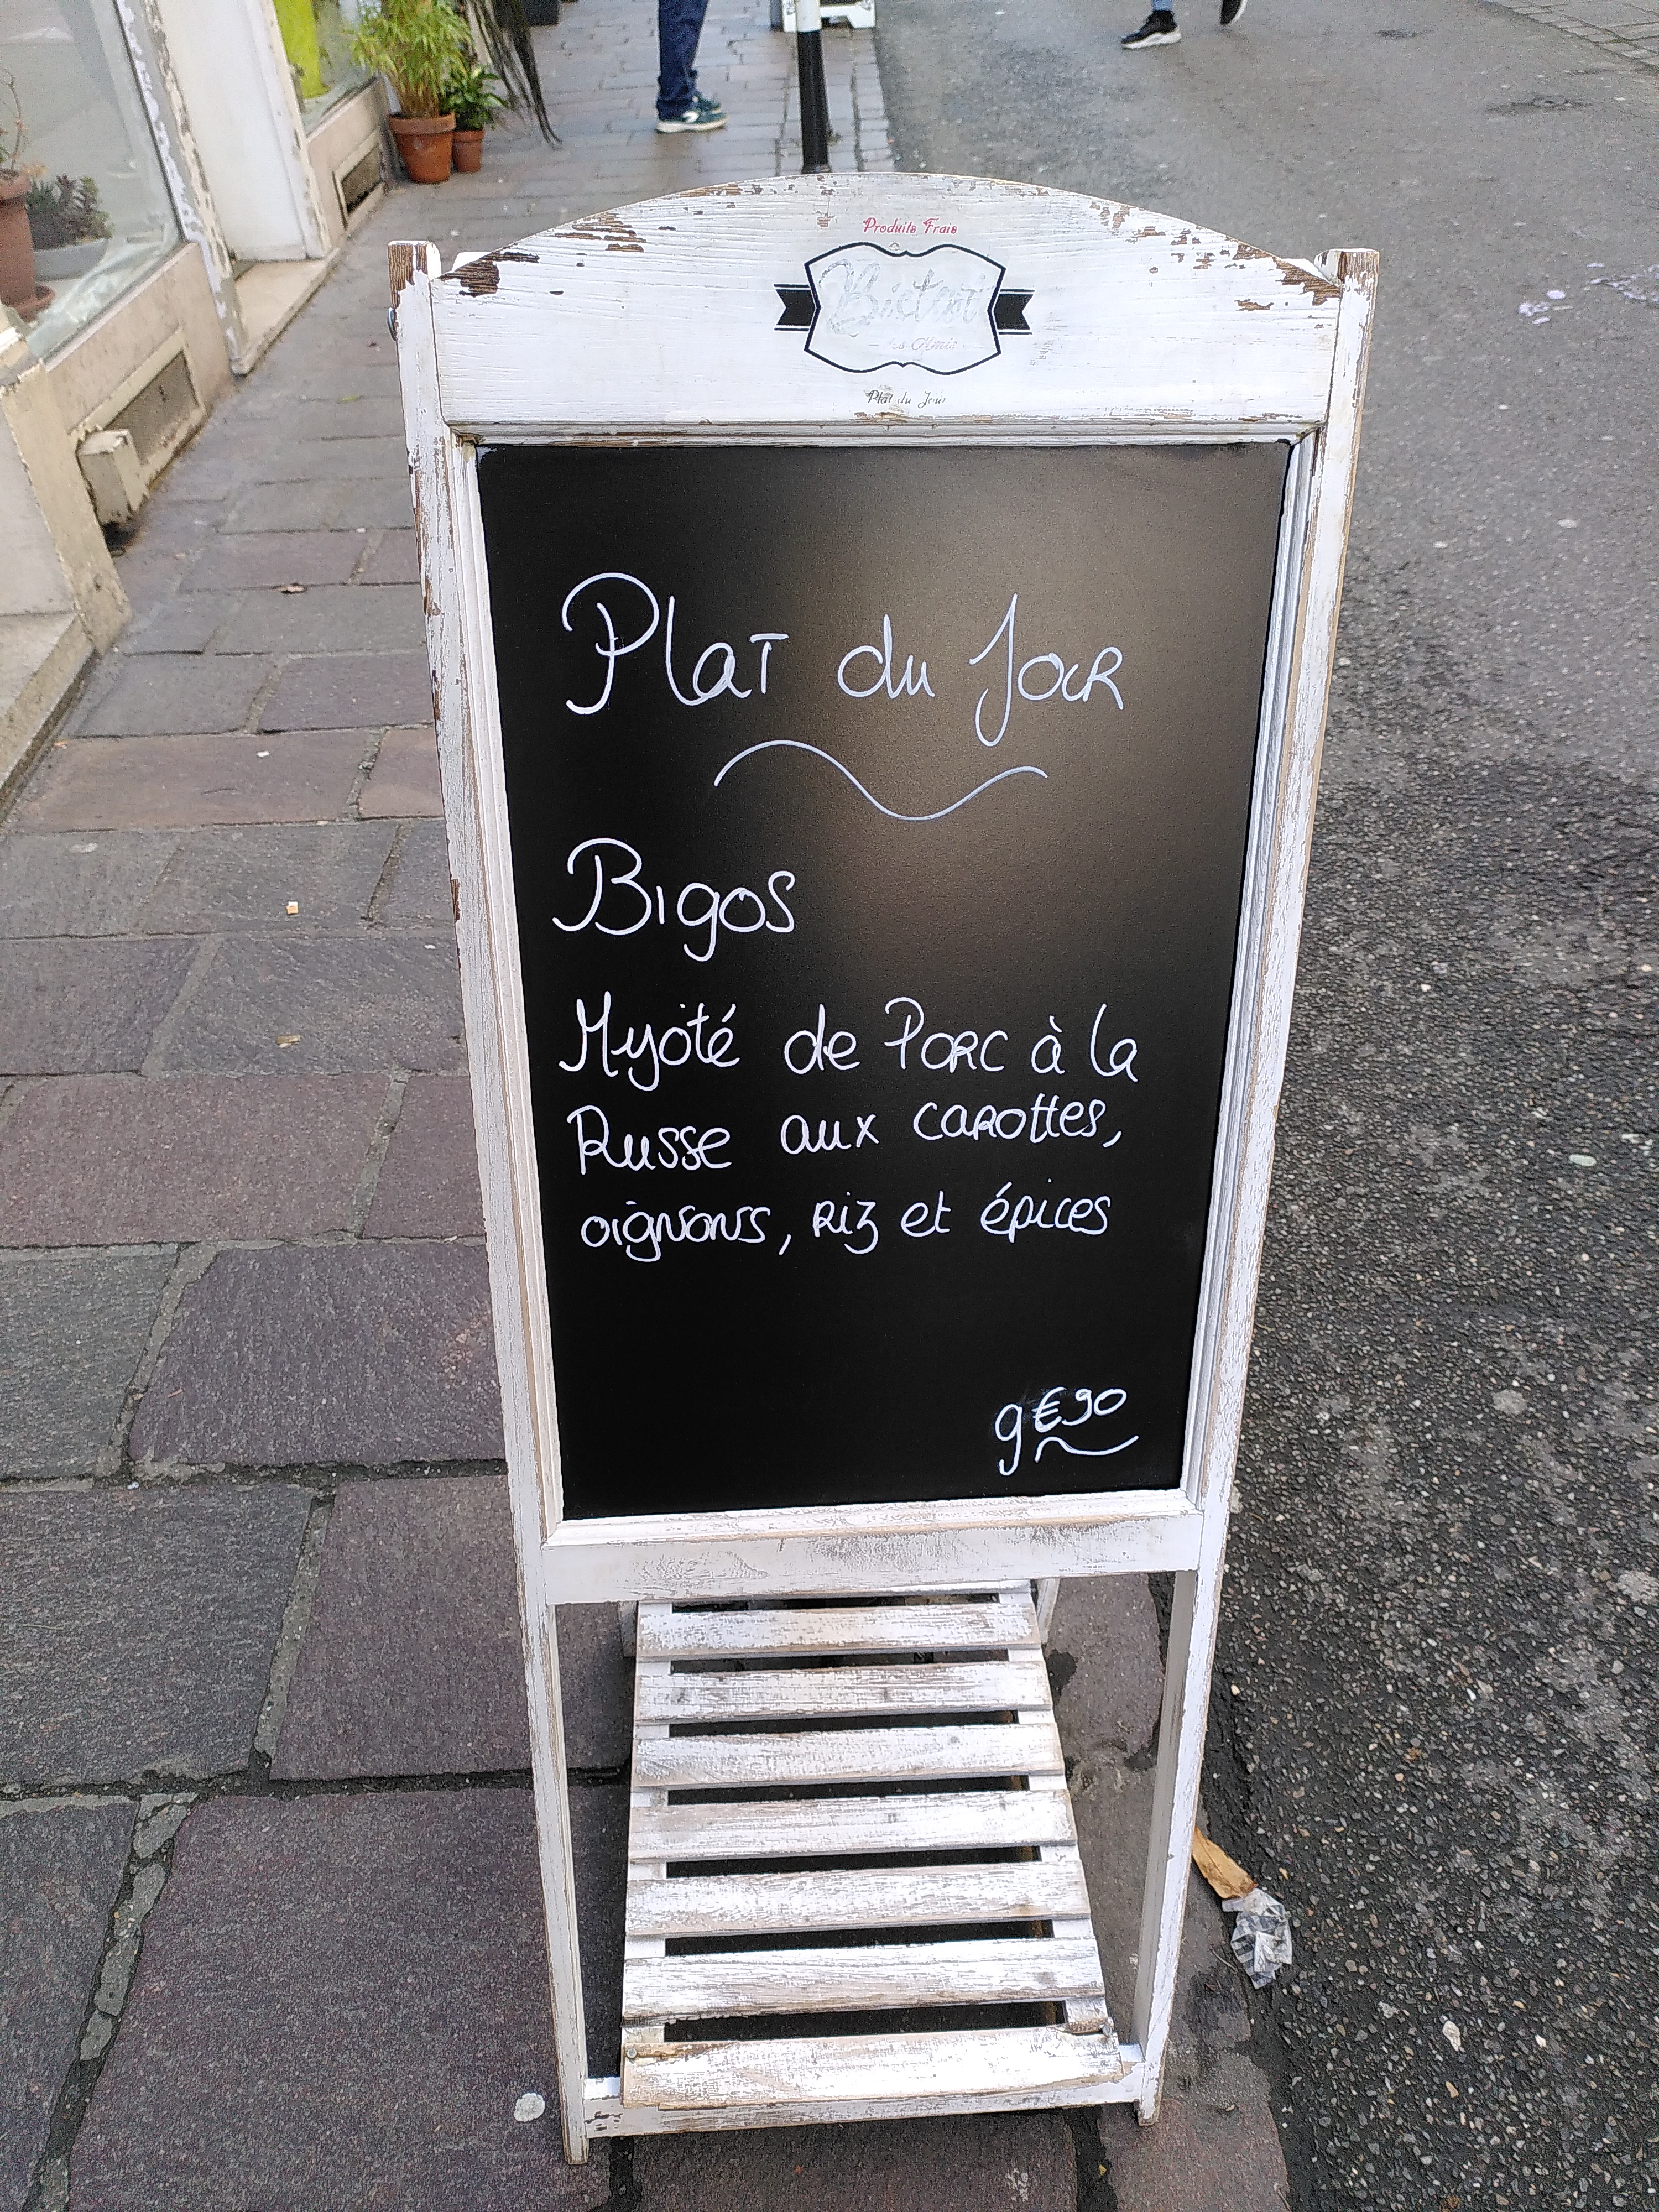 Produits Frais
Bistrot
Plat du Jour
Plat du Jour
Bigos
Myoté de Porc à la
Russe aux carottes,
oignons, riz et épices
9€90